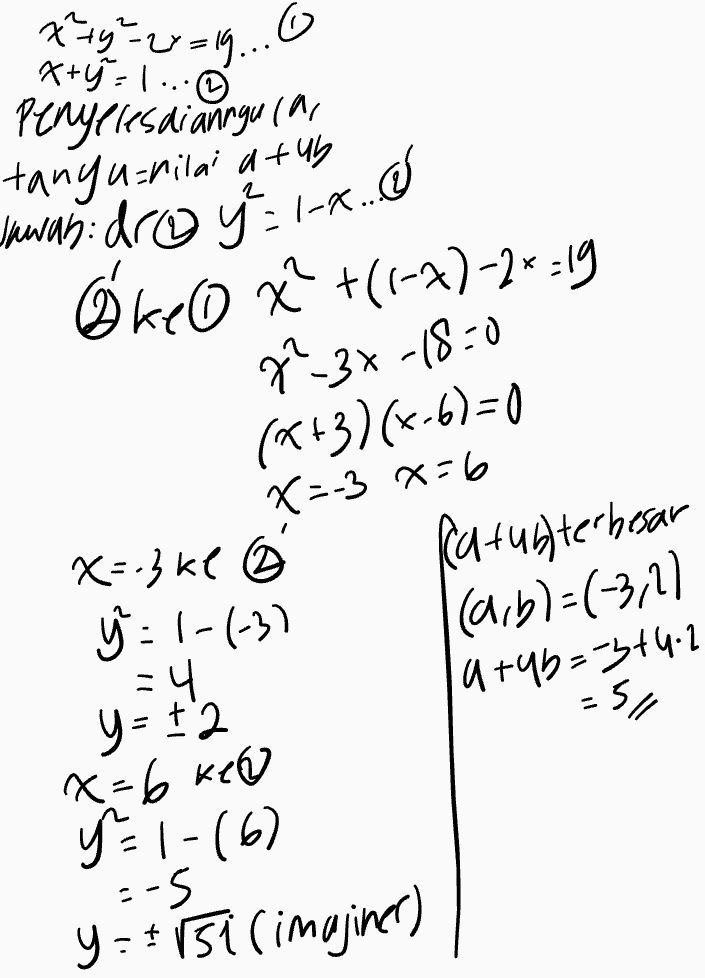 x²+y²-2x=19...①
x+y²=1...②
tanya=nilai a+4b
Jawab: dr② y²=1-x...②'
②'ke① x²+(1-x)-2x=19
x²-3x-18=0
(x+3)(x-6)=0
x=-3 x=6
x=-3 ke ②'
y²=1-(-3)
=4
y=±2
x=6 ke②
y²=1-(6)
=-5
y=±√5i (imajiner)
(a+4b)terbesar
(a,b)=(-3,2)
a+4b=-3+4·2
=5//